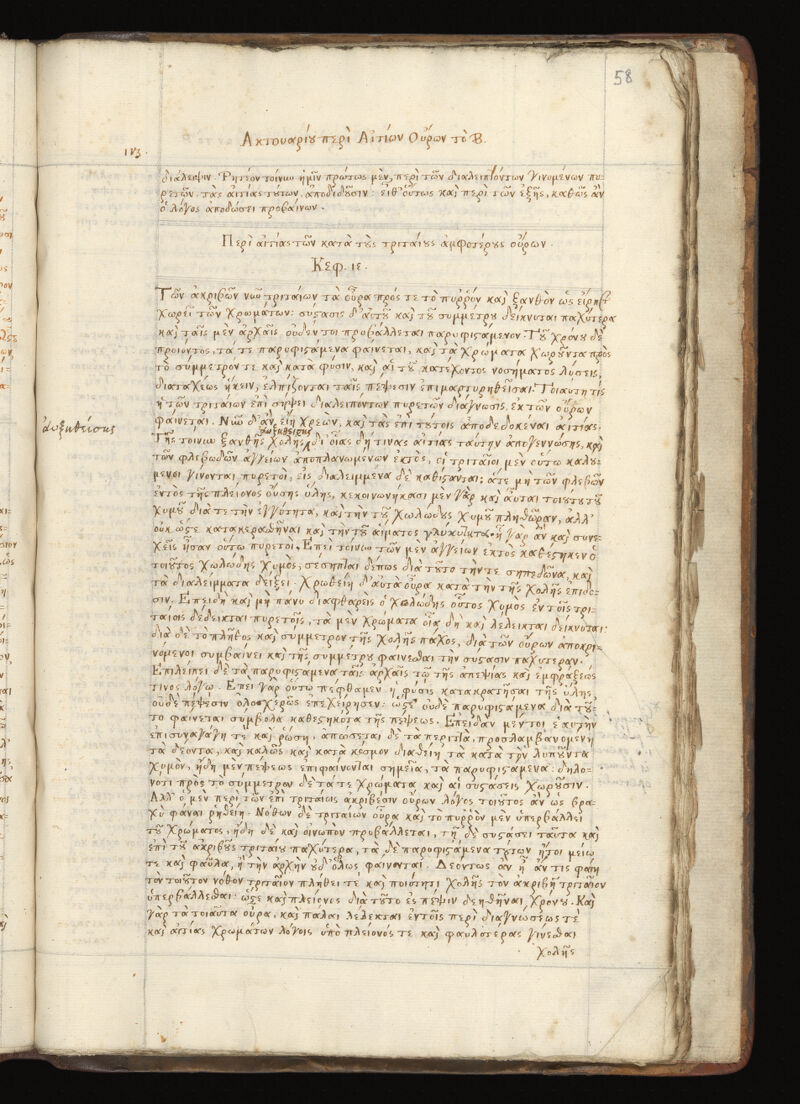 58
Ακτουαρίου περὶ Αἰτίων Οὔρων τὸ Β.
διάλειψιν. Ῥητέον τοίνυν ἡμῖν πρώτως μὲν, περὶ τῶν διαλειπόντων γινομένων πυ-
ρετῶν, τὰς αἰτίας τούτων, ἀποδιδοῦσιν: εἶθ' οὕτως καὶ περὶ τῶν ἑξῆς, καθὼς ἂν
ὁ λόγος ἀποδώσει προβαίνων.
Περὶ αἰτίας τῶν κατὰ τοὺς τριταίους ἀμφοτέρους οὔρων.
Κεφ. ιε.
Τῶν ἀκριβῶν νῦν τριταίων τὰ οὖρα πρός τε τὸ πυῤῥὸν καὶ ξανθὸν ὡς εἴρηται
χωρεῖ τῶν χρωμάτων: σύστασις δ' αὐτοῦ καὶ τοῦ συμμέτρου δείκνυται παχύτερα
καὶ ταῖς μὲν ἀρχαῖς οὐδέν τοι προβάλλεται παρυφιστάμενον. Τοῦ χρόνου δὲ
προϊόντος, τά τε παρυφιστάμενα φαίνεται, καὶ τὰ χρώματα χωροῦντα πρὸς
τὸ σύμμετρόν τε καὶ κατὰ φύσιν, καὶ αἱ τοῦ κατέχοντος νοσήματος λύσεις,
διαταχέως ἥκειν, ἐλπίζονται ταῖς πέψεσιν ἐπιμαρτυρηθεῖσαι. Τοιαύτη τις
ἡ τῶν τριταίων ἐπὶ σήψει διαλειπόντων πυρετῶν διάγνωσις, ἐκ τῶν οὔρων
φαίνεται. Νῦν δ' ἂν εἴη χρεὼν, καὶ τὰς ἐπὶ τούτοις ἀποδεδοκέναι αἰτίας.
αὐξηθείσης
Τῆς τοίνυν ξανθῆς χολῆς, δι' οἵας δή τινας αἰτίας ταύτην ἀπογεννώσης, καὶ
τῶν φλεβωδῶν ἀγγείων ἀποπλανωμένων ἐκτὸς, οἱ τριταῖοι μὲν οὕτω καλού-
μενοι γίνονται πυρετοὶ, εἰς διαλειμμένα δὲ καθίστανται: ἅτε μὴ τῶν φλεβῶν
ἐντὸς τῆς πλείονος οὔσης ὕλης, κεκοινωνήκασι μὲν γὰρ καὶ αὗται τοιούτου τοῦ
χυμοῦ διά τε τὴν ἐγγύτητα, καὶ τὴν τοῦ χολώδους χυμοῦ πληθώραν, ἀλλ'
οὐκ ὥστε κατακεραθῆναι καὶ τὴν τοῦ αἵματος γλυκύτητα. ἦ γὰρ ἂν καὶ συνε-
χεῖς ἦσαν οὕτω πυρετοί. Ἐπεὶ τοίνυν τῶν μὲν ἀγγείων ἐκτὸς καθέστηκεν ὁ
τοιοῦτος χολώδης χυμὸς, σέσηπται δέπως διὰ τοῦτο τήν τε σηπεδόνα, καὶ
τὰ διαλείμματα δείξει. Χρωσθείη δ' αὐτὰ οὖρα κατὰ τὴν τῆς χολῆς ἐπίδο-
σιν. Ἐπειδὴ καὶ μὴ πάνυ διαφθαρεὶς ὁ χολώδης οὗτος χυμὸς ἐν τοῖς τρι-
ταίοις δέδεικται πυρετοῖς, τὰ μὲν χρώματα οἷα δὴ καὶ λέλεικται δείκνυται:
διὰ δὲ τὸ πλῆθος καὶ σύμμετρον τῆς χολῆς πάχος, διὰ τῶν οὔρων ἀποκρι-
νόμενοι συμβαίνει καὶ τῆς συμμέτρου φαίνεσθαι τὴν σύστασιν παχυτέραν.
Ἐπιλείπει δὲ τὰ παρυφιστάμενα ταῖς ἀρχαῖς τῷ τῆς ἀπεψίας καὶ ἐμφράξεώς
τινος λόγῳ. Ἐπεὶ γὰρ οὕτω πεφθαμεν ἡ φύσις κατακρατῆσαι τῆς ὕλης,
οὐδὲ πέψεσιν ὁλοσχερῶς ἐπεχείρησεν: ὥστε οὐδὲ παρυφιστάμενα διὰ τοῦ-
το φαίνεται σύμβολα καθεστηκότα τῆς πέψεως. Ἐπειδὰν μέντοι ἑαυτὴν
ἐπισυναγάγῃ τε καὶ ῥώσῃ, ἀπώσεται δὲ τὰ περιττὰ, προσλαμβανομένη
τὰ δέοντα, καὶ καλῶς καὶ κατὰ κόσμον διαθείη τὰ κατὰ τὸν λυποῦντα
χυμὸν, ἤδη μὲν πέψεως ἐπιφαίνονται σημεῖα, τὰ παρυφιστάμενα: δηλο-
νότι πρὸς τὸ σύμμετρον δὲ τά τε χρώματα καὶ αἱ συστάσεις χωροῦσιν.
Ἀλλ' ὁ μὲν περὶ τῶν ἐπὶ τριταίοις ἀκριβέσιν οὔρων λόγος τοιοῦτος ἂν ὡς βρα-
χὺ φάναι ῥηθείη. Νόθων δὲ τριταίων οὖρα καὶ τὸ πυῤῥὸν μὲν ὑπερβάλλει
τοῦ χρώματος, ἤδη δὲ καὶ οἰνωπὸν προβάλλεται, τῇ δὲ συστάσει ταῦτα καὶ
ἐπὶ τοῦ ἀκριβοῦς τριταίου παχύτερα, τὰ δὲ παρυφιστάμενα τούτων ἤτοι μείω
τε καὶ φαῦλα, ἢ τὴν ἀρχὴν οὐδ' ὅλως φαίνονται. Δεόντως ἂν ᾖ ἄν τις φαίη
τὸν τοιοῦτον νόθον τριταῖον πλήθει τὲ καὶ ποιότητι χολῆς τὸν ἀκριβῆ τριταῖον
ὑπερβάλλεσθαι: ὥστε καὶ πλείονος διὰ τοῦτο ἐς πέψιν δεηθῆναι χρόνου. Καὶ
γὰρ τὰ τοιαῦτα οὖρα, καὶ πάλαι λέλεκται ἐν τοῖς περὶ διαγνώσεώς τε
καὶ αἰτίας χρωμάτων λόγοις ὑπὸ πλείονός τε καὶ φαυλοτέρας γίνεσθαι
χολῆς
αὐξηθείσης